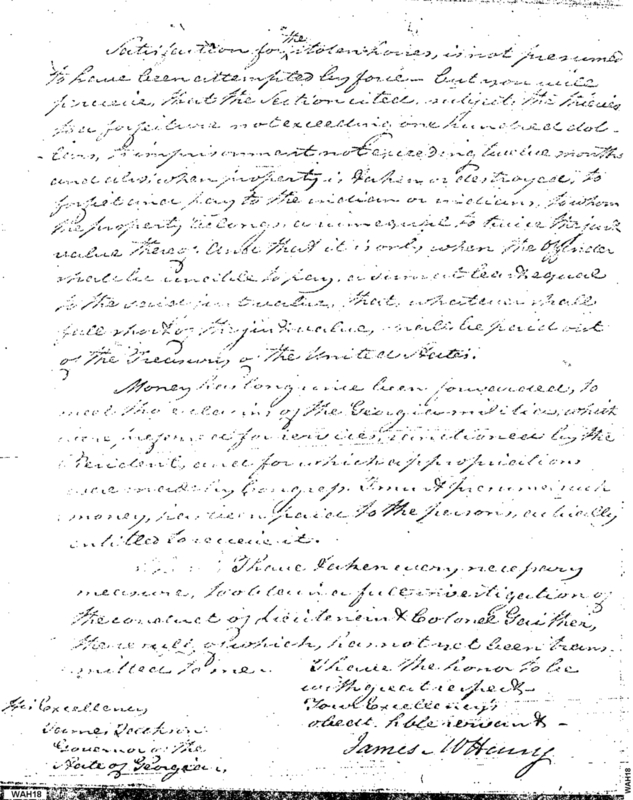 Satisfaction for the stolen horses, is not presumed
to have been attempted by force — but you will
perceive, that the Section cited, subjects the
to a forfeiture not exceeding one hundred dol-
lars, & imprisonment not exceeding twelve months
and also when property is taken or destroyed, to
forfeit and pay to the indian or indians, to whom
the property belongs, a sum equal to twice the just
value thereof: And that it is only when the offender
shall be unable to pay, a sum at least equal
to the said just value, that, whatever shall
fall short of the just value, shall be paid out
of the Treasury of the United States.
Money has long since been forwarded, to
meet the claims of the Georgia militia, which
were for services, sanctioned by the
President, and for which appropriations
were made by Congress. I must presume such
money, has been paid to the persons, actually
entitled to receive it.
I have taken every necessary
measure, to obtain a full investigation of
the conduct of Lieutenant Colonel Gaither,
the result, of which, has not yet been trans-
mitted to me.
I have the honor to be
with great respect
Your Excellency's
obedt. hble servant
James McHenry
His Excellency
James Jackson
Governor of the
State of Georgia.
WAH18
WAH18